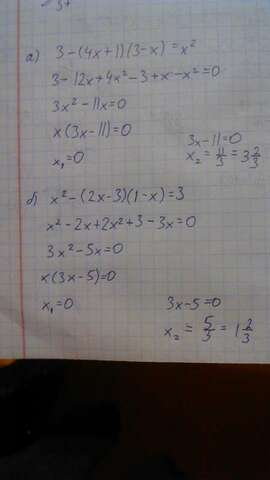 а) 3-(4x+1)(3-x)=x²
3-12x+4x²-3+x-x²=0
3x²-11x=0
x(3x-11)=0
x₁=0 3x-11=0
x₂=11/3=3 2/3
б) x²-(2x-3)(1-x)=3
x²-2x+2x²+3-3x=0
3x²-5x=0
x(3x-5)=0
x₁=0 3x-5=0
x₂=5/3=1 2/3